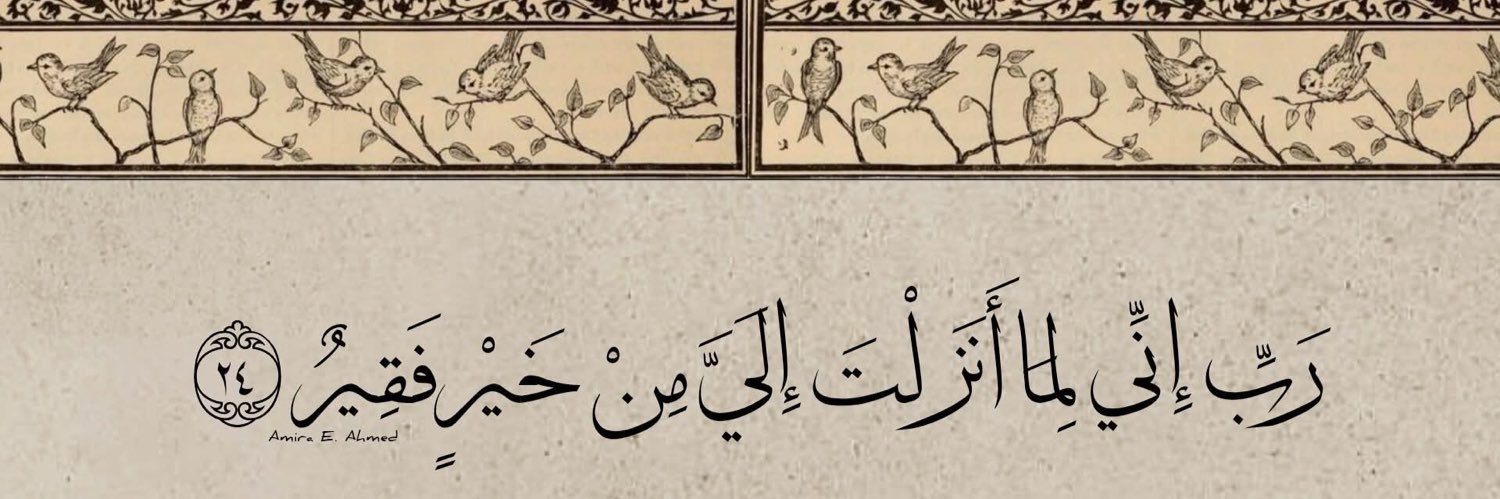 رَبِّ إِنِّي لِمَا أَنزَلْتَ إِلَيَّ مِنْ خَيْرٍ فَقِيرٌ ٢٤
Amira E. Ahmed